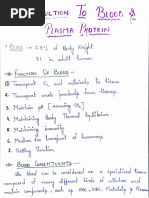 DUCTION TO BLOOD &
PLASMA PROTEIN
BLOOD → 7.8% of Body Weight
5L in adult human
FUNCTION OF BLOOD -
① Transport O₂ and nutrients to tissue
② Transport waste products from tissues
③ Maintain pH [
④ Maintaining Body Thermal Equilibrium
⑤ Immunity
⑥ Medium for transport of hormones
⑦ Clotting Function
BLOOD CONSTITUENTS -
The blood can be considered as a specialised tissue
composed of many different kinds of cellular and
components, such as RBC, WBC, Platelets, & Plasma